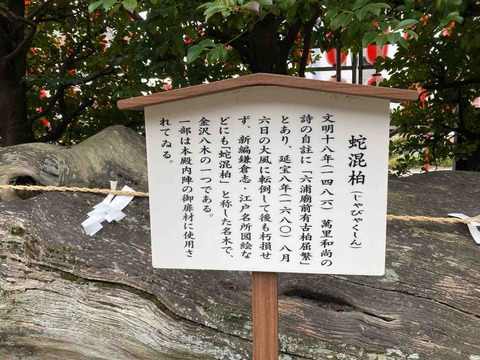 蛇混柏（じゃびゃくしん）
文明十八年（一四八六）萬里和尚の
詩の自註に「六浦廟前有古柏屈繁」
とあり、延宝八年（一六八〇）八月
六日の大風に転倒して後も朽損せ
ず、新編鎌倉志・江戸名所図絵な
どにも「蛇混柏」と称した名木で、
金沢八木の一つである。
一部は本殿内陣の御扉材に使用さ
れてゐる。